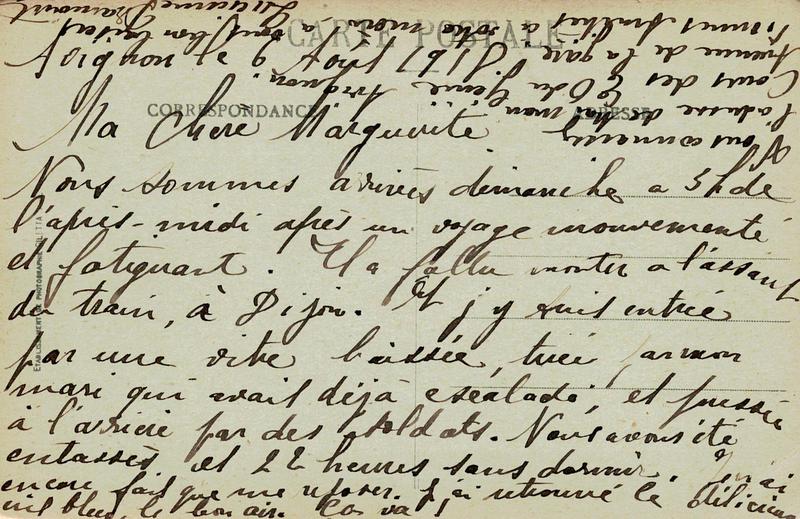 CARTE POSTALE
CORRESPONDANCE
ADRESSE
Avignon le 6 Août
Ma chère Marguerite
Nous sommes arrivés dimanche a 5h de
l'après-midi après un voyage mouvementé
et fatiguant. Il a fallu monter a l'assaut
du train, à Dijon. Et j'y suis entrée
par une vitre baissée, tirée par mon
mari qui avait déjà escaladé, et poussée
à l'arrière par des soldats. Nous avons été
entassés et 22 heures sans dormir. Je n'ai
encore fait que me reposer. J'ai retrouvé le délicieux
ciel bleu, le bon air. Ca va!
Vous connaissez
l'adresse de mon
Cours des du Génie Avignon.
Avenue de la gare
à votre